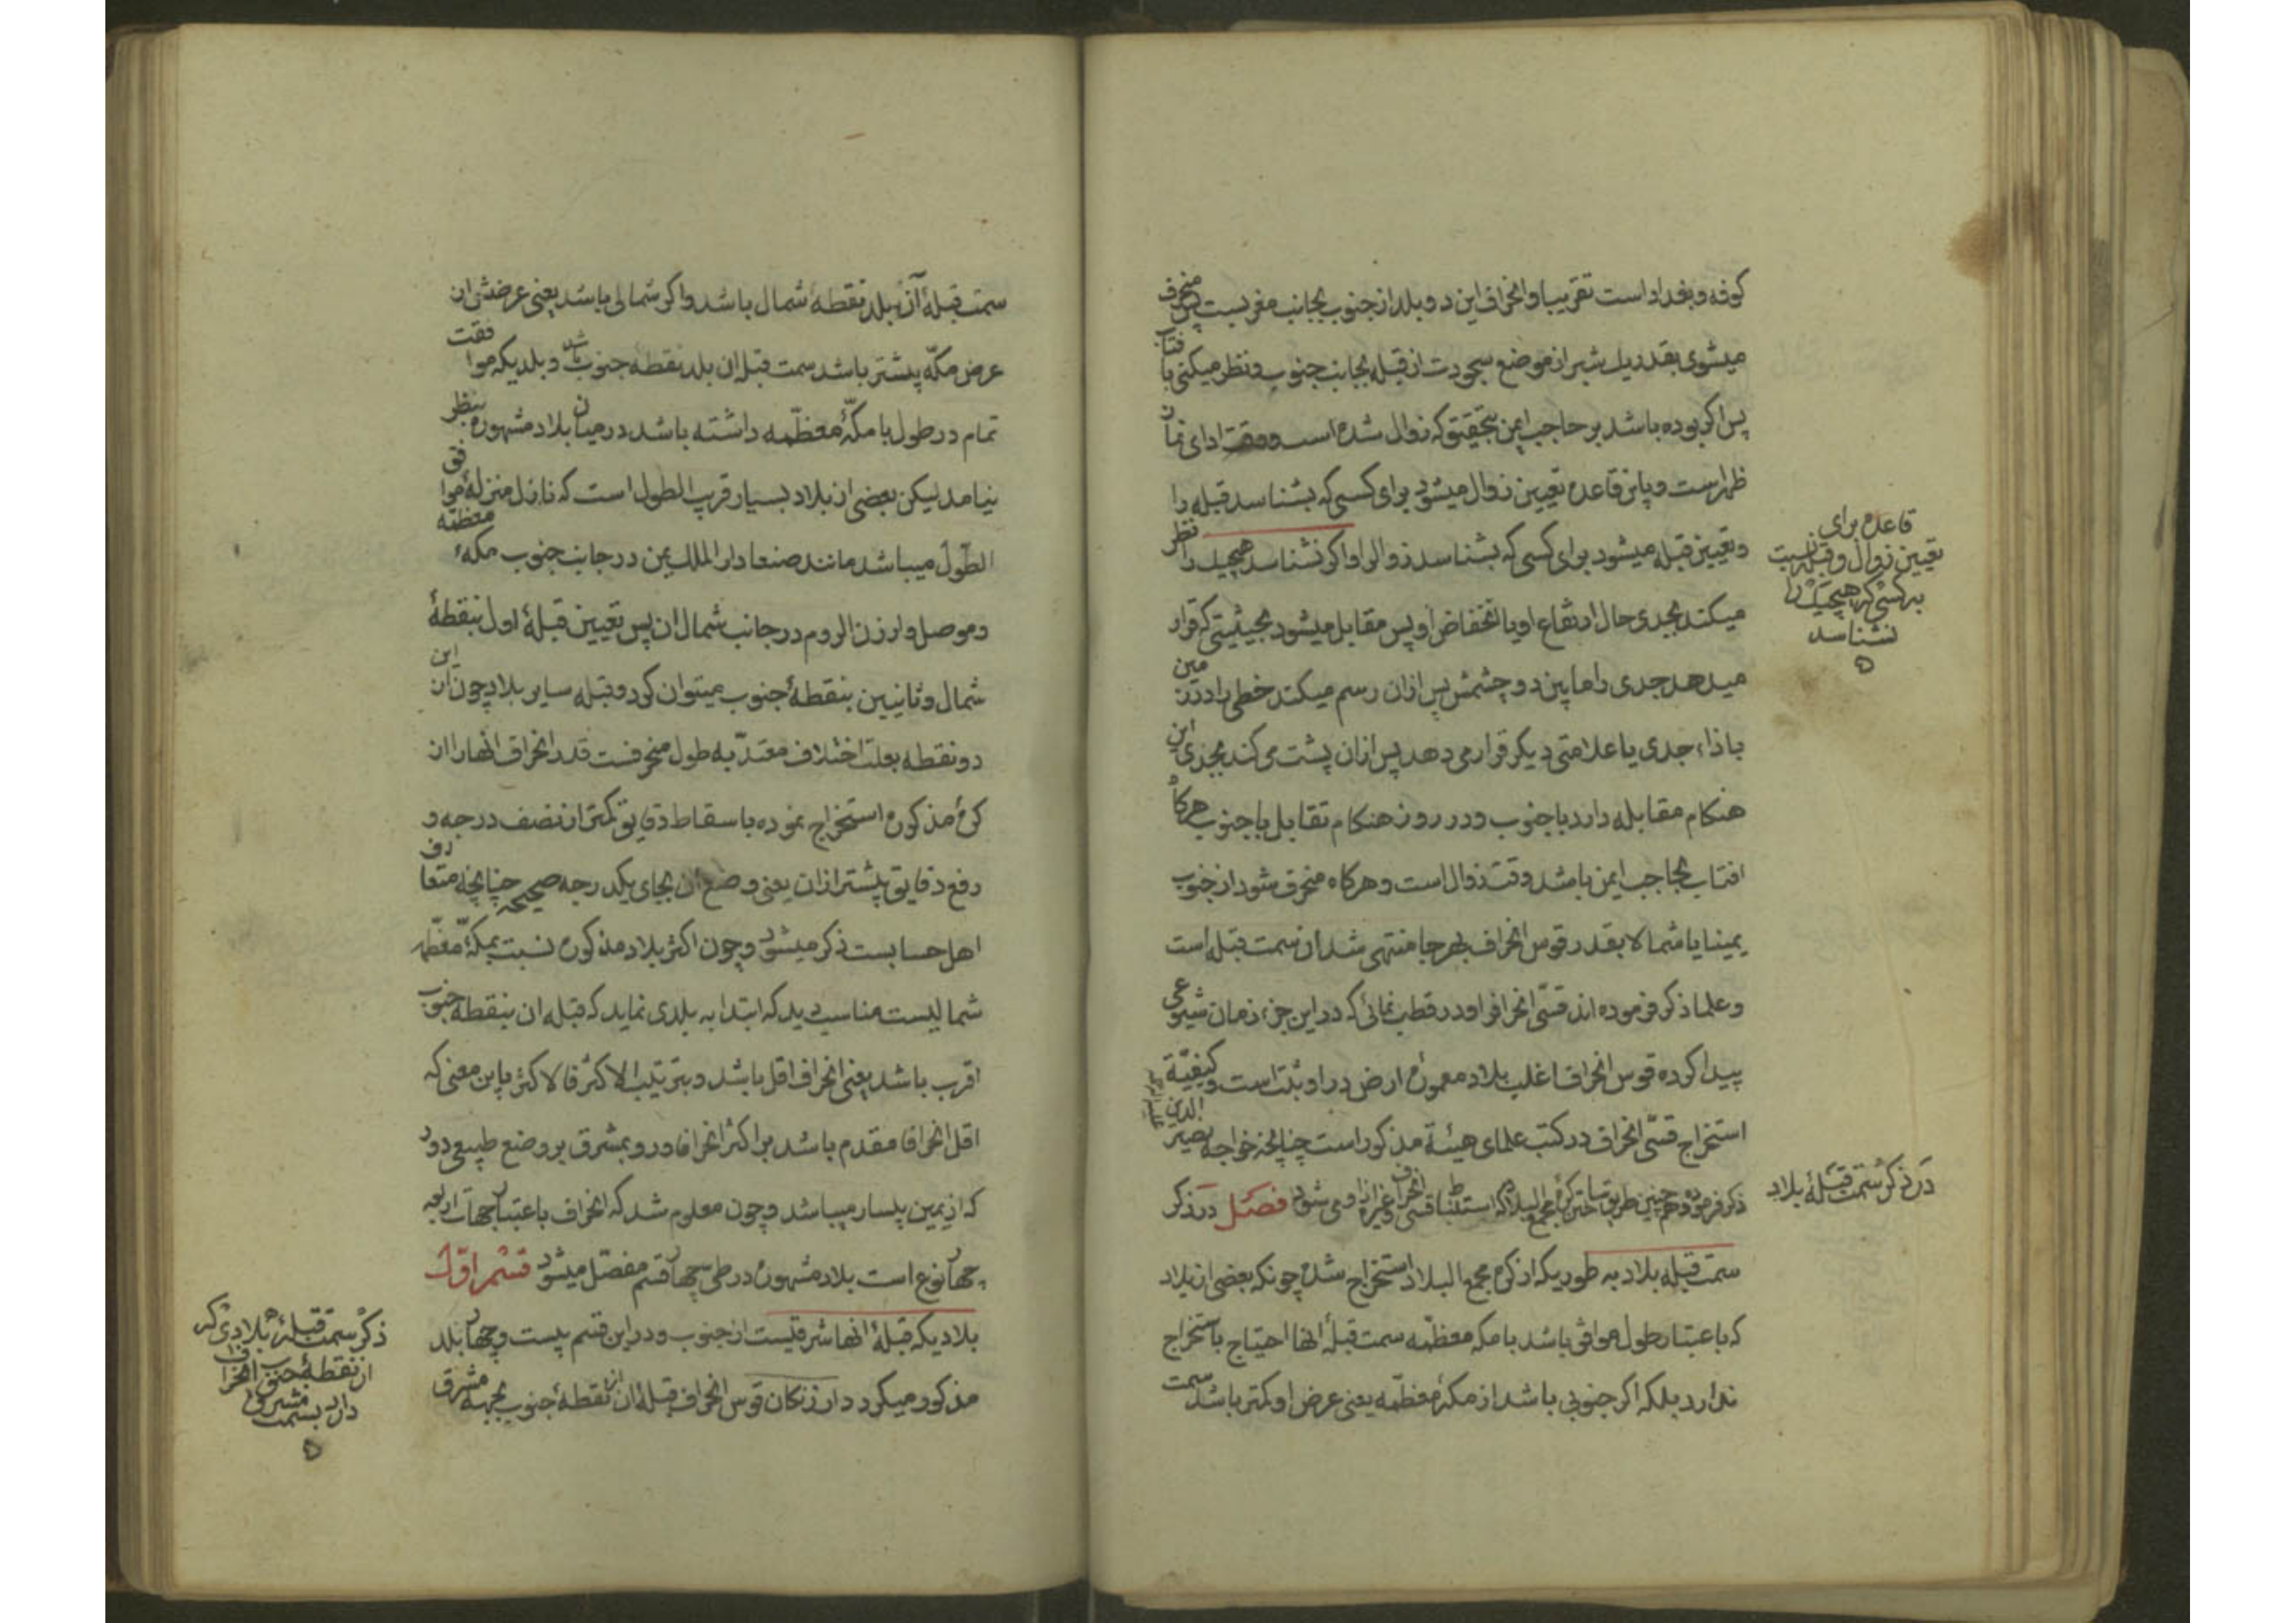 كوفه و بغداد است تقریبا و انحراف این دو بلد از جنوب بجانب مغربست پس منحرف
میشوی بقدر یك شبر از موضع سجودت از قبله بجانب جنوب و نظر میكنی بآفتاب
پس اكر بوده باشد بر حاجب ایمن بتحقیق كه زوال شده است و وقت ادای نماز
ظهر است و باین قاعده تعیین زوال میشود برای كسی كه بشناسد قبله را
و تعیین قبله میشود برای كسی كه بشناسد زوال را و اكر نشناسد هیچیك را نظر
میكند بجدی حال ارتفاع او یا انخفاض او پس مقابل میشود بحیثیتی كه قرار
میدهد جدی را مابین دو چشمش پس ازان رسم میكند خطی را در زمین
باذاء جدی یا علامتی دیكر قرار می دهد پس ازان پشت می كند بجدی این
هنكام مقابله دارد با جنوب و در روز هنكام تقابل با جنوب هركاه
افتاب بحاجب ایمن باشد وقت زوال است و هركاه منحرف شود از جنوب
یمینا یا شمالا بقدر قوس انحراف بهر جا منتهی شد ان سمت قبله است
و علما ذكر فرموده اند قسّی انحراف را و در قطب نمائی كه در این جزء زمان شیوعی
پیدا كرده قوس انحراف اغلب بلاد معموره ارض در او ثبت است و كیفیّة
استخراج قسّی انحراف در كتب علمای هیئة مذكور است چنانچه خواجه نصیر الدین
ذكر فرموده و همچنین طریق ساختن كرهٔ مجمع البلاد كه استنباط قسی انحراف و غیره ازاو می شود فصل در ذكر
سمت قبله بلاد به طوریكه از كره مجمع البلاد استخراج شده چونكه بعضی از بلاد
كه باعتبار طول موافق باشد با مكه معظمّه سمت قبلهٔ انها احتیاج باستخراج
ندارد بلكه اكر جنوبی باشد از مكهٔ معظمّه یعنی عرض او كمتر باشد سمت
قاعده برای
تعیین زوال و قبله نسبت
به كسی كه هیچیك را
نشناسد
در ذكر سمت قبلهٔ بلاد
سمت قبلهٔ آن بلد نقطهٔ شمال باشد و اكر شمالی باشد یعنی عرضش از
عرض مكّه بیشتر باشد سمت قبله ان بلد نقطه جنوب باشد و بلدیكه موافقت
تمام در طول با مكّهٔ معظّمه داشته باشد در میان بلاد مشهوره بنظر
نیامد لیكن بعضی از بلاد بسیار قریب الطول است كه نازل منزلهٔ موافق
الطّول میباشد مانند صنعا دار الملك یمن در جانب جنوب مكهٔ معظمّه
و موصل و ارزن الروم در جانب شمال ان پس تعیین قبلهٔ اول بنقطهٔ
شمال و ثانیین بنقطهٔ جنوب میتوان كرد و قبله سایر بلاد چون از این
دو نقطه بعلت اختلاف معتدّ به طول منحرفست قدر انحراف انها را از
كرهٔ مذكوره استخراج نموده باسقاط دقایق كمتر از نصف درجه و
رفع دقایق بیشتر ازان یعنی وضع ان بجای یكدرجه صحیحه چنانچه متعارف
اهل حسابست ذكر میشود و چون اكثر بلاد مذكوره نسبت بمكّهٔ معظّمه
شمالیست مناسب دید كه ابتدا به بلدی نماید كه قبله ان بنقطهٔ جنوب
اقرب باشد یعنی انحراف اقل باشد و بترتیب الاكثر فالاكثر باین معنی كه
اقل انحرافا مقدم باشد بر اكثر انحرافا و رو بمشرق بر وضع طبیعی دور
كه از یمین بیسار میباشد و چون معلوم شد كه انحراف باعتبار جهات اربعه
چهار نوع است بلاد مشهوره در طی چهار قسم مفصّل میشود قسم اوّل
بلادیكه قبلهٔ انها شرقیست از جنوب و در این قسم بیست و چهار بلد
مذكور میكردد ارزنكان قوس انحراف قبلهٔ ان از نقطهٔ جنوب بجهة مشرق
ذكر سمت قبلهٔ بلادی كه
از نقطهٔ جنوب انحراف
دارد بسمت مشرق